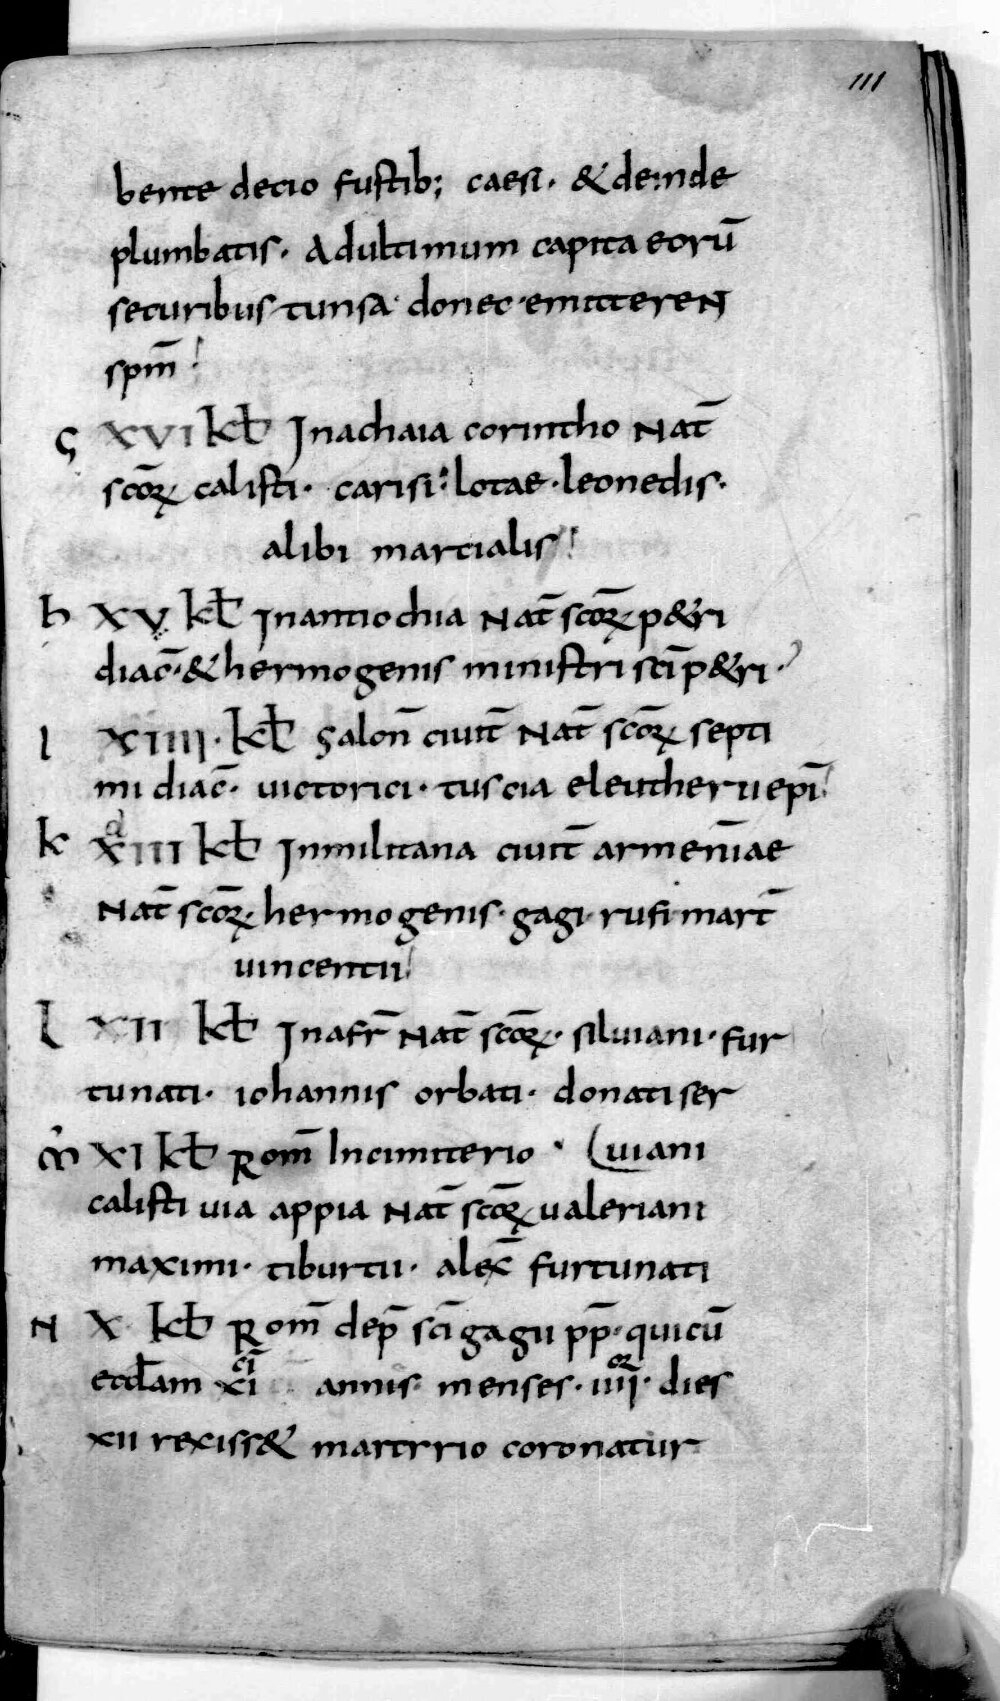 111
bente decio fustib; caesi. & deinde
plumbatis. Adultimum capita eorū
securibus tunsa donec emitteren
spm̄
ς XVI kƚ Inachaia corintho Nat̄
scōꝝ calisti. carisi: lotae. leonedis.
alibi martialis
h XV kƚ Inantiochia Nat̄ scōꝝ p&ri
diac̄. & hermogenis ministri sc̄i p&ri.
I XIIII. kƚ Salon̄ ciuit̄ Nat̄ scōꝝ septi
mi diac̄. uictorici. tuscia eleutherii ep̄i
k XIII kƚ Inmilitana ciuit̄ armeniae
Nat̄ scōꝝ. hermogenis. gagi. rufi mart̄
uincentii
l XII kƚ Inafr̄ Nat̄ scōꝝ. siluiani. fur
tunati. iohannis orbati. donati ser
m̄ XI kƚ Rom̄ Incimiterio (uiani
calisti uia appia Nat̄ scōꝝ ualeriani
maximi. tiburtii. alex̄ furtunati
N X kƚ Rom̄ dep̄ sc̄i gagii pp̄. quicū
eccƚam xi annis menses. iiii. dies
xii rexiss& martrrio coronatur